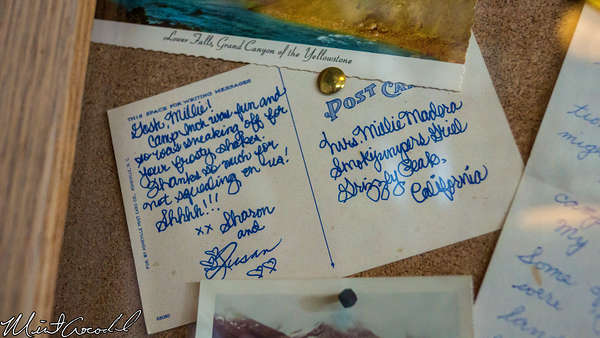 Lower Falls, Grand Canyon of the Yellowstone
THIS SPACE FOR WRITING MESSAGES
Gosh, Millie!
Camp Inch was fun and
so was sneaking off for
your frosty shakes.
Thanks so much for
not squealing on us!
Shhhh!!!
xx Sharon
and
Susan
POST CA
Mrs. Millie Madera
Smokejumpers Grill
Grizzly Peak,
California
PUB. BY ASHEVILLE POST CARD CO., ASHEVILLE, N. C.
my
Some
were